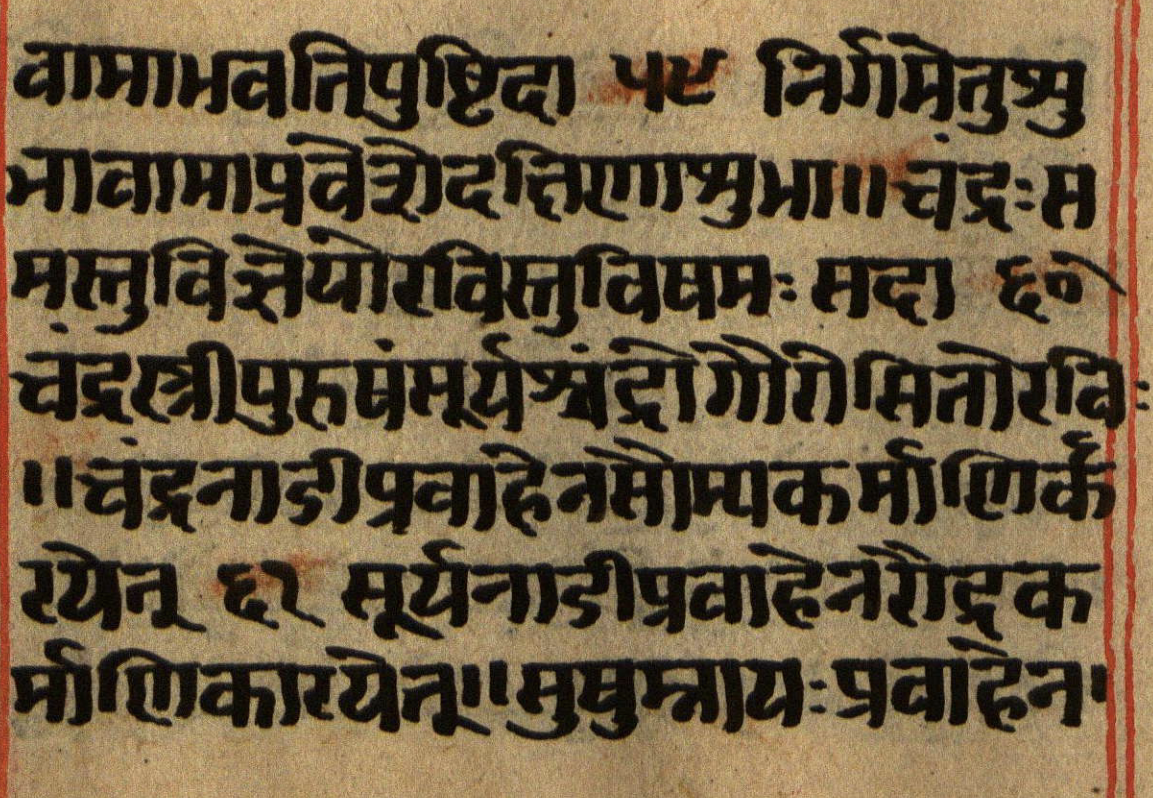 वामाभवतिपुष्टिदा ५९ निर्गमेतुशु
भावामाप्रवेशेदक्षिणाशुभा॥चंद्रःस
मस्तुविज्ञेयोरविस्तुविषमः सदा ६०
चंद्रस्त्रीपुरुषंसूर्यश्चंद्रोगौरोसितोरविः
॥चंद्रनाडीप्रवाहेनसौम्यकर्माणिर्क
रयेत् ६१ सूर्यनाडीप्रवाहेनरौद्रक
र्माणिकारयेत्॥सुषुम्नायःप्रवाहेन।